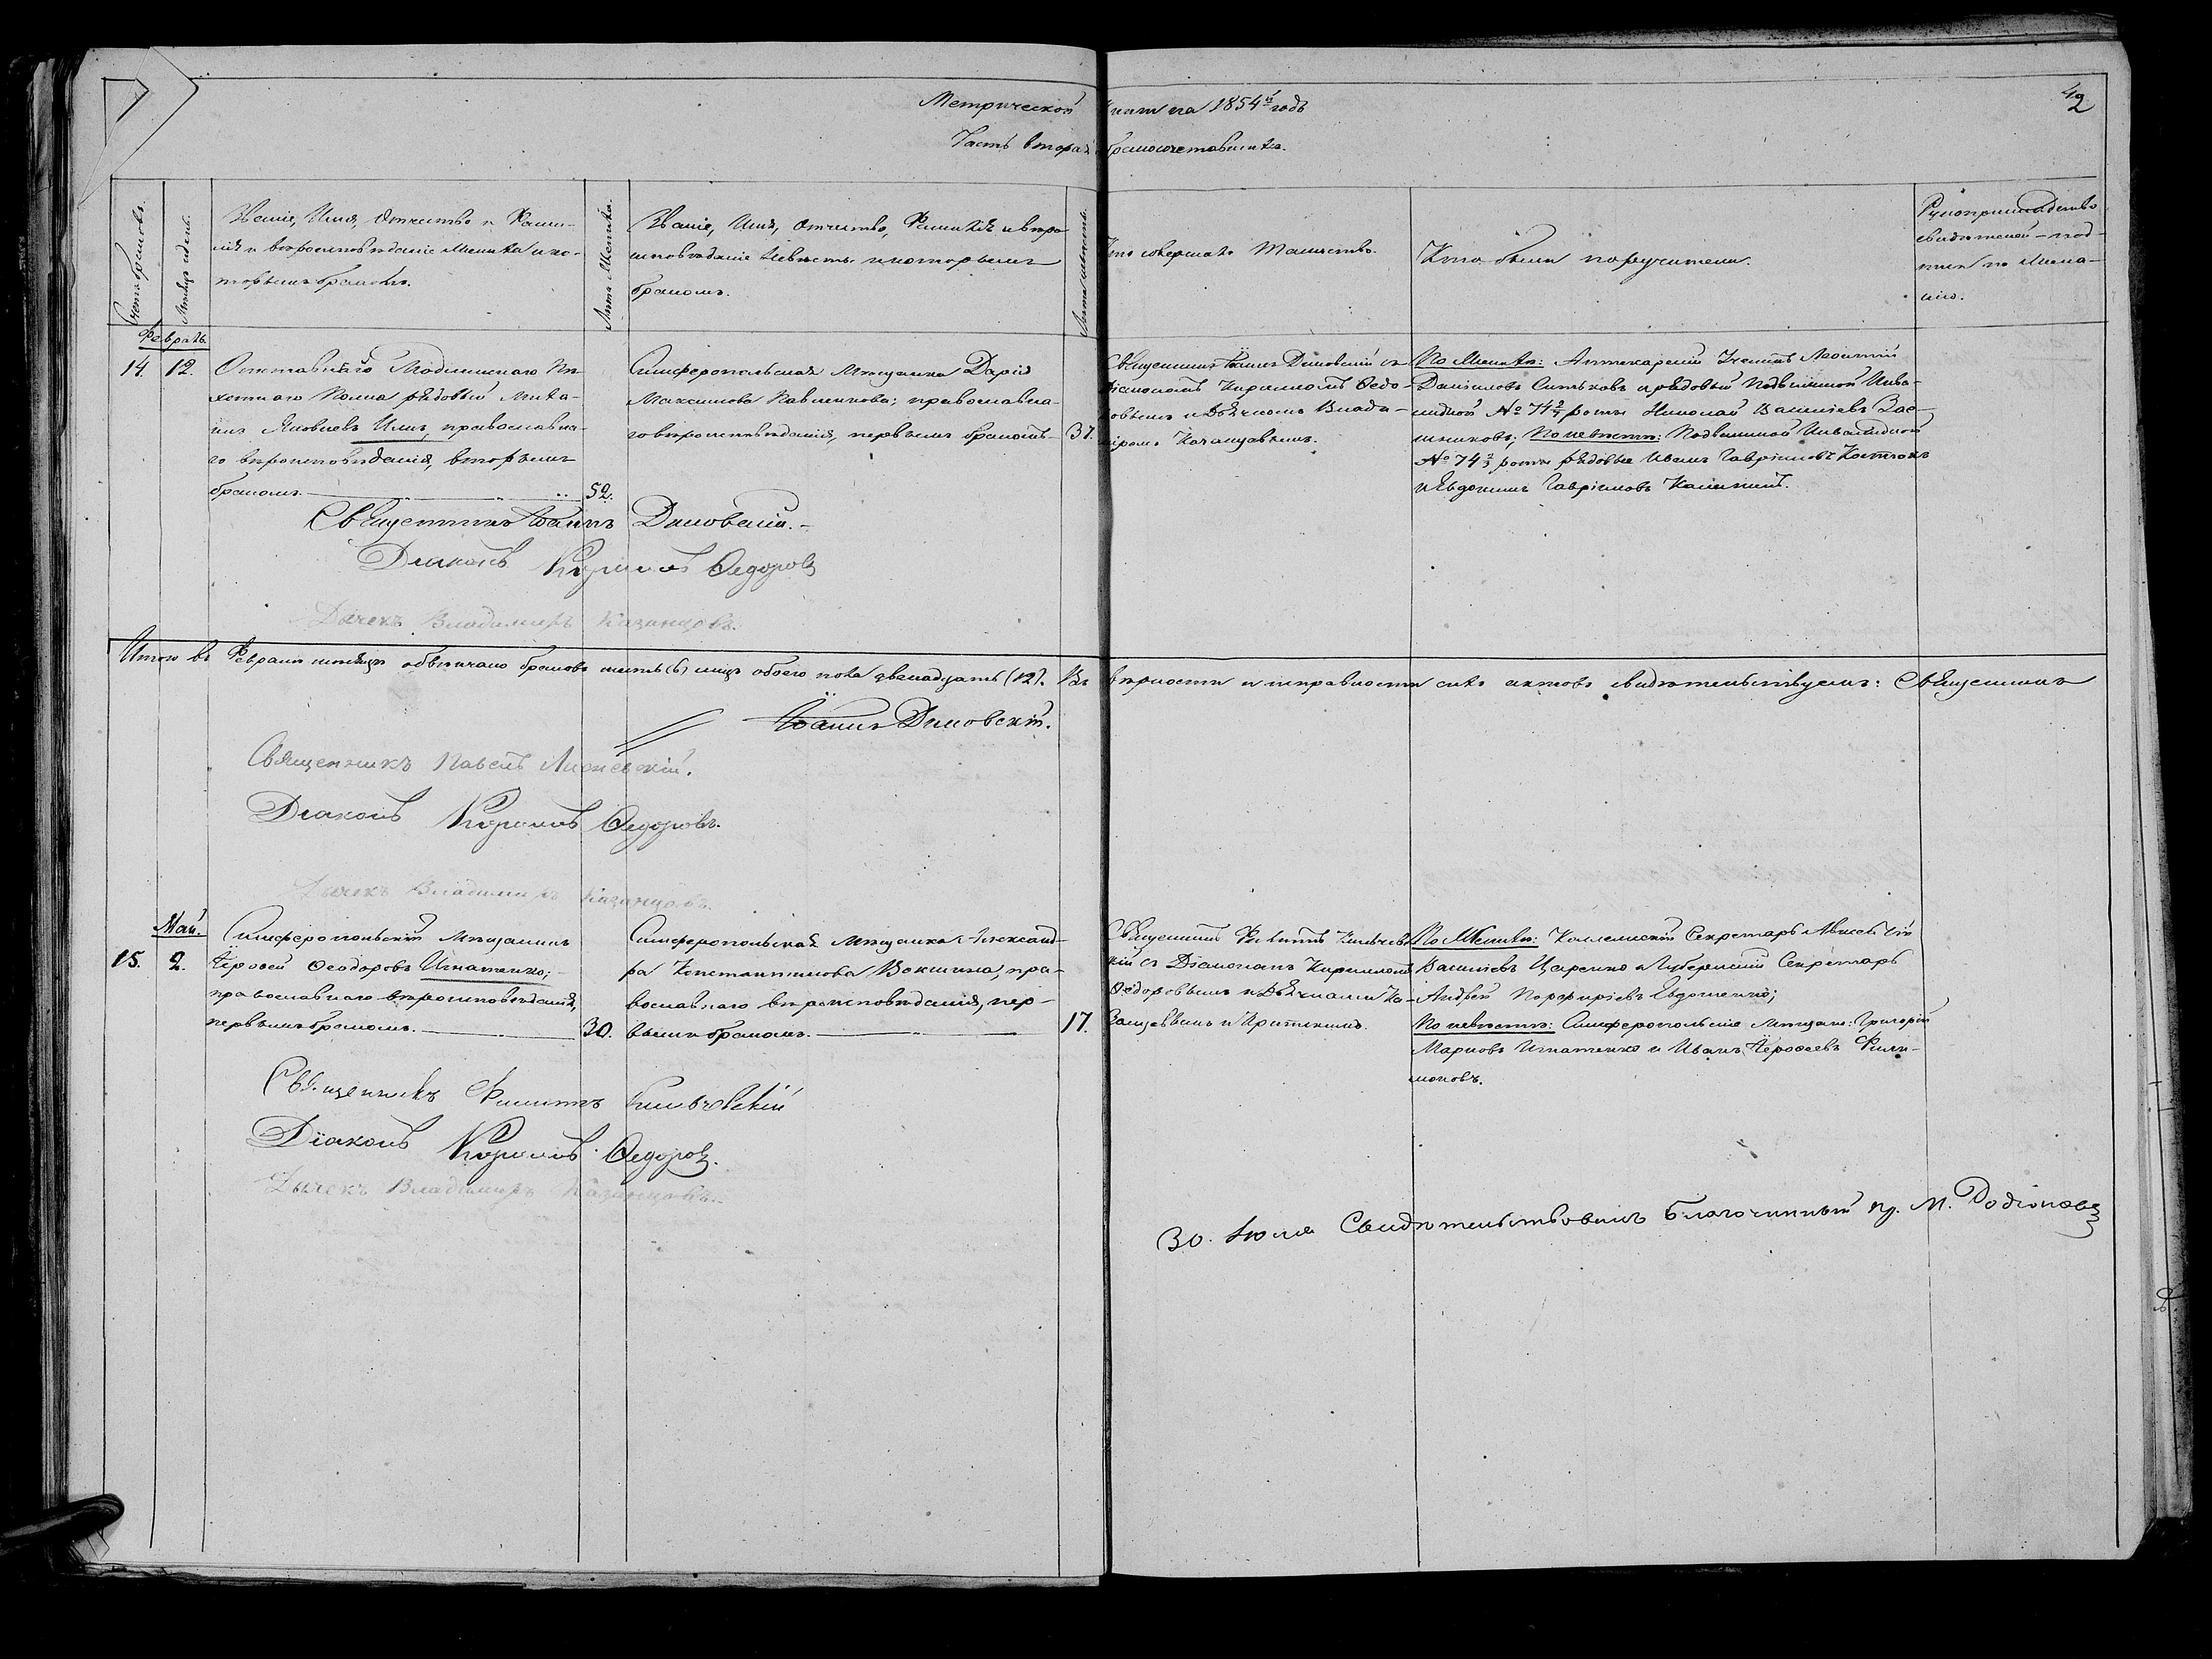 Метрической книги на 1854й годъ
42
Часть вторая о бракосочетавшихся.
Счетъ браковъ.
Мѣсяцъ и день.
Званіе, Имя, Отчество и Фами-
лія и вѣроисповѣданіе Жениха и ко-
торымъ бракомъ.
Лѣта Жениха.
Званіе, Имя, Отчество, Фамилія и вѣро-
исповѣданіе Невѣсты и которымъ
бракомъ.
Лѣта невѣсты.
Кто совершалъ Таинство.
Кто были поручители.
Рукоприкладство
свидѣтелей – под-
писи по жела-
нію.
Февраль
14. 12.
Отставной Модлинскаго Пѣ-
хотнаго Полка рядовый Миха-
илъ Яковлевъ Илик, православна-
го вѣроисповѣданія, вторымъ
бракомъ. 52.
Симферопольская Мѣщанка Дарія
Максимова Павленкова; православна-
го вѣроисповѣданія, первымъ бракомъ 37.
Священникъ Іоаннъ Димовскій съ
Діакономъ Кириломъ Ѳедо-
ровымъ и Дьячкомъ Влади-
міромъ Казанцевымъ.
По Женихѣ: Аптекарскій Ученикъ Леонтій
Даниловъ и рядовый Подвижной Инва-
лидной № 74 2/3 роты Николай Васильевъ
По невѣстѣ: Подвижной Инвалидной
№ 74 2/3 роты рядовые Иванъ Гавриловъ
и Евдокимъ Гавриловъ
Священникъ Іоаннъ Димовскій.
Діаконъ Кирилъ Ѳедоровъ
Дьячекъ Владимиръ Казанцовъ.
Итого въ Февралѣ мѣсяцѣ обвѣнчано браковъ шесть (6) лицъ обоего пола двенадцать (12). Въ вѣрности и исправности сихъ актовъ свидѣтельствуемъ: Священникъ
Іоаннъ Димовскій.
Священникъ Павелъ
Діаконъ Кирилъ Ѳедоровъ.
Дьячекъ Владимиръ Казанцовъ.
Май.
15. 2.
Симферопольскій Мѣщанинъ
Іероѳей Ѳеодоровъ Игнатенко;
православнаго вѣроисповѣданія,
первымъ бракомъ. 30.
Симферопольская Мѣщанка Александ-
ра Константинова Вокшина, пра-
вославнаго вѣроисповѣданія, пер-
вымъ бракомъ. 17.
Священникъ Филиппъ Кильчев-
кій съ Діакономъ Кириломъ
Ѳедоровымъ и Дьячками Ка-
занцевымъ и
По Женихѣ: Коллежскій Секретарь Алексѣй
Васильевъ Царенко и Губернскій Секретарь
Андрей Порфиріевъ Евдошенко;
По невѣстѣ: Симферопольскіе мѣщане: Григорій
Марковъ Игнатенко и Иванъ Іероѳеевъ Фили-
моновъ.
Священникъ Филиппъ Кильчевскій
Діаконъ Кирилъ Ѳедоровъ.
Дьячекъ Владимиръ Казанцовъ.
30. Іюля Свидѣтельствовалъ Благочинный пр. М. Родіоновъ